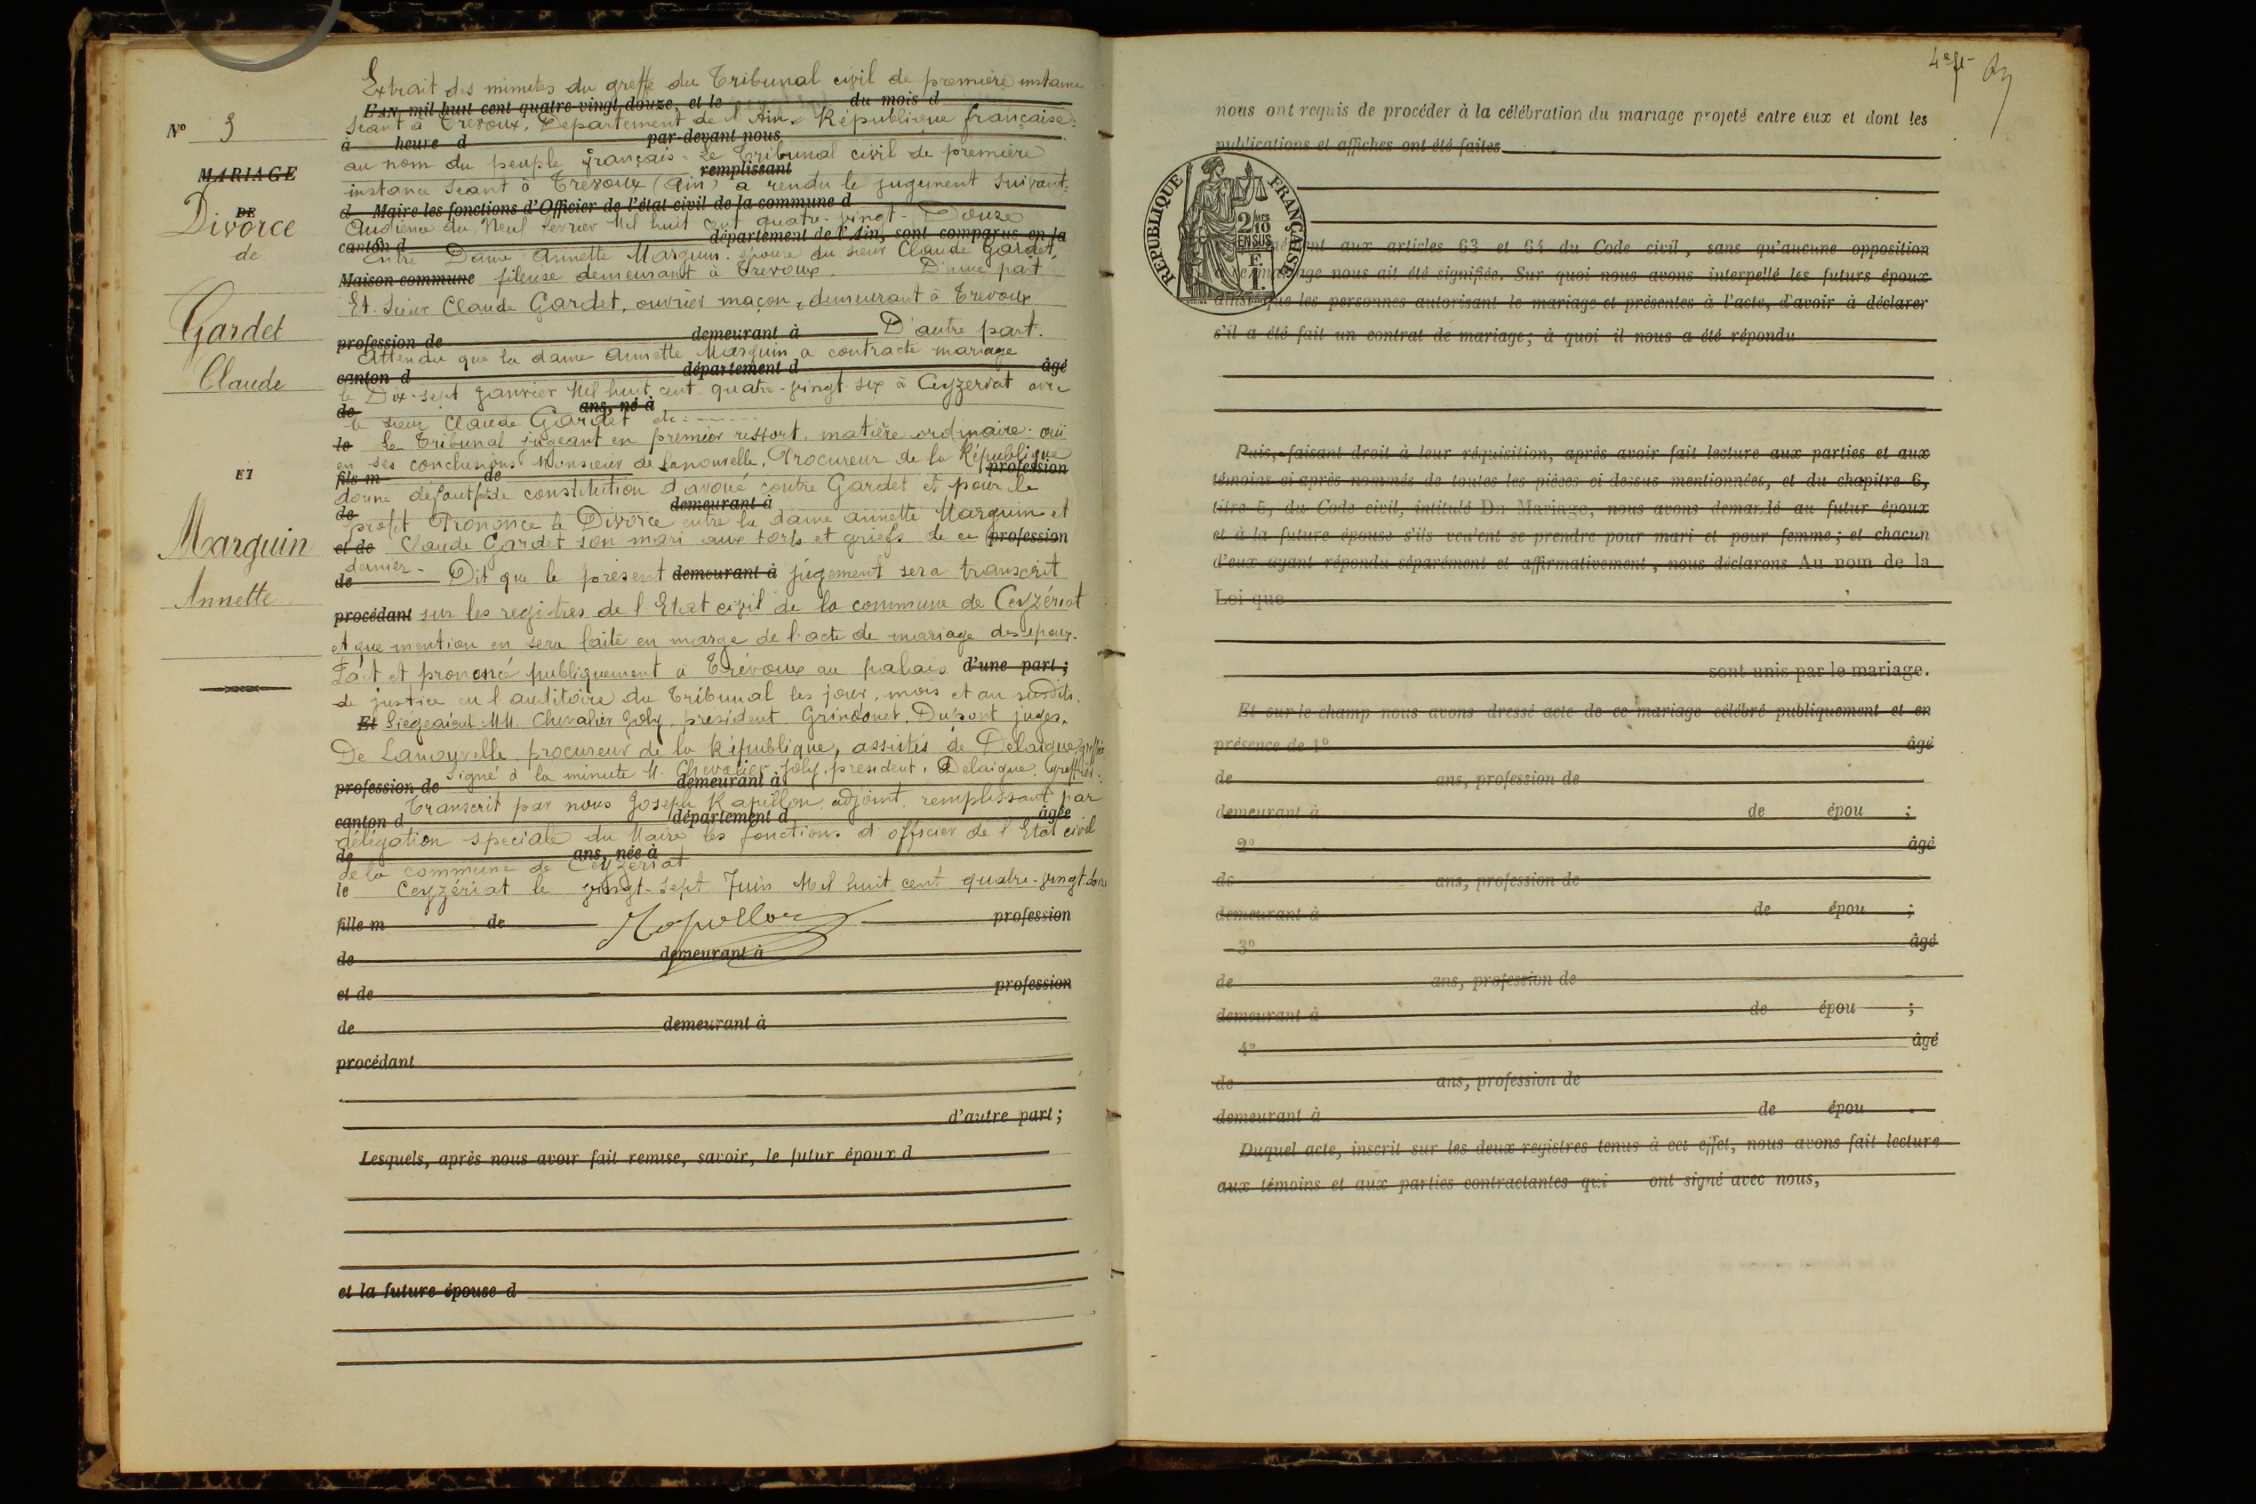 Extrait des minutes du greffe du Tribunal civil de première instance
L'AN mil huit cent quatre-vingt-douze, et le du mois d
Séant à Trévoux, Département de l'Ain. République française.
à heure d par-devant nous
au nom du peuple français. Le Tribunal civil de première
remplissant
instance séant à Trévoux (Ain) a rendu le jugement suivant:
d Maire les fonctions d'Officier de l'état civil de la commune d
Audience du Neuf février Mil huit cent quatre-vingt-Douze
canton d département de l'Ain, sont comparus en la
Entre Dame Annette Marguin. épouse du sieur Claude Gardet,
Maison commune fileuse demeurant à Trevoux. D'une part
Et. Sieur Claude Gardet, ouvrier maçon, demeurant à Trevoux
profession de demeurant à D'autre part.
Attendu que la dame Annette Marguin a contracté mariage
canton d département d âgé
le Dix-sept Janvier Mil huit cent quatre-vingt six à Ceyzeriat avec
de ans, né à
le sieur Claude Gardet etc.
le Le Tribunal jugeant en premier ressort, matière ordinaire. ouï
en ses conclusions Monsieur de Lanouvelle, Procureur de la République
fils m de profession
donne défaut de constitution d'avoué contre Gardet et pour le
de demeurant à
profit Prononce le Divorce entre la dame Annette Marguin et
et de Claude Gardet son mari aux torts et griefs de ce profession
dernier.
de Dit que le présent demeurant à jugement sera transcrit
procédant sur les registres de l'Etat civil de la commune de Ceyzériat
et que mention en sera faite en marge de l'acte de mariage des époux.
Fait et prononcé publiquement à Trévoux au palais d'une part;
de justice en l'auditoire du Tribunal les jour, mois et an susdits.
Et Siégeaient MM. Chevalier Joly, président. Grindonet, Dupont juges,
De Lanouvelle procureur de la République, assistés de Delaigue greffier
Signé à la minute M. Chevalier Joly, président, Delaigue, Greffier.
profession de demeurant à
Transcrit par nous Joseph Rapillon, adjoint remplissant par
canton d département d âgée
délégation spéciale du Maire les fonctions d'officier de l'Etat civil
de ans, née à
de la commune de Ceyzériat
le Ceyzériat le vingt-sept Juin Mil huit cent quatre-vingt-douze
fille m de Rapillon profession
de demeurant à
et de profession
de demeurant à
procédant
d'autre part;
Lesquels, après nous avoir fait remise, savoir, le futur époux d
et la future épouse d
N° 3
MARIAGE
DE
Divorce
de
Gardet
Claude
ET
Marguin
Annette
4e ft
nous ont requis de procéder à la célébration du mariage projeté entre eux et dont les
publications et affiches ont été faites
RÉPUBLIQUE FRANÇAISE
2 MES
10
EN SUS
1 F.
aux articles 63 et 64 du Code civil, sans qu'aucune opposition
nous ait été signifiée. Sur quoi nous avons interpellé les futurs époux
ainsi que les personnes autorisant le mariage et présentes à l'acte, d'avoir à déclarer
s'il a été fait un contrat de mariage; à quoi il nous a été répondu
Puis, faisant droit à leur réquisition, après avoir fait lecture aux parties et aux
témoins ci-après nommés de toutes les pièces ci-dessus mentionnées, et du chapitre 6,
titre 5, du Code civil, intitulé Du Mariage, nous avons demandé au futur époux
et à la future épouse s'ils veulent se prendre pour mari et pour femme; et chacun
d'eux ayant répondu séparément et affirmativement, nous déclarons Au nom de la
Loi que
sont unis par le mariage.
Et sur-le-champ nous avons dressé acte de ce mariage célébré publiquement et en
présence de 1° âgé
de ans, profession de
demeurant à de épou ;
2° âgé
de ans, profession de
demeurant à de épou ;
3° âgé
de ans, profession de
demeurant à de épou ;
4° âgé
de ans, profession de
demeurant à de épou .
Duquel acte, inscrit sur les deux registres tenus à cet effet, nous avons fait lecture
aux témoins et aux parties contractantes qui ont signé avec nous,